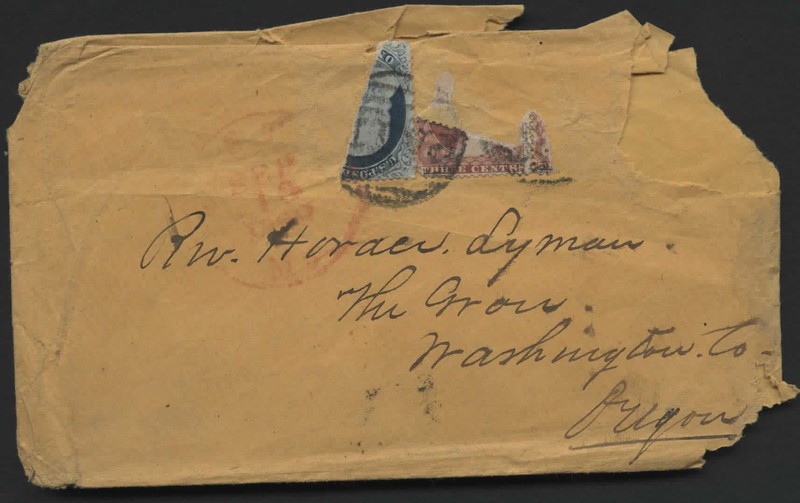 U.S. POST
THREE CENTS
Rev. Horace. Lyman.
The Grove.
Washington. Co-
Oregon